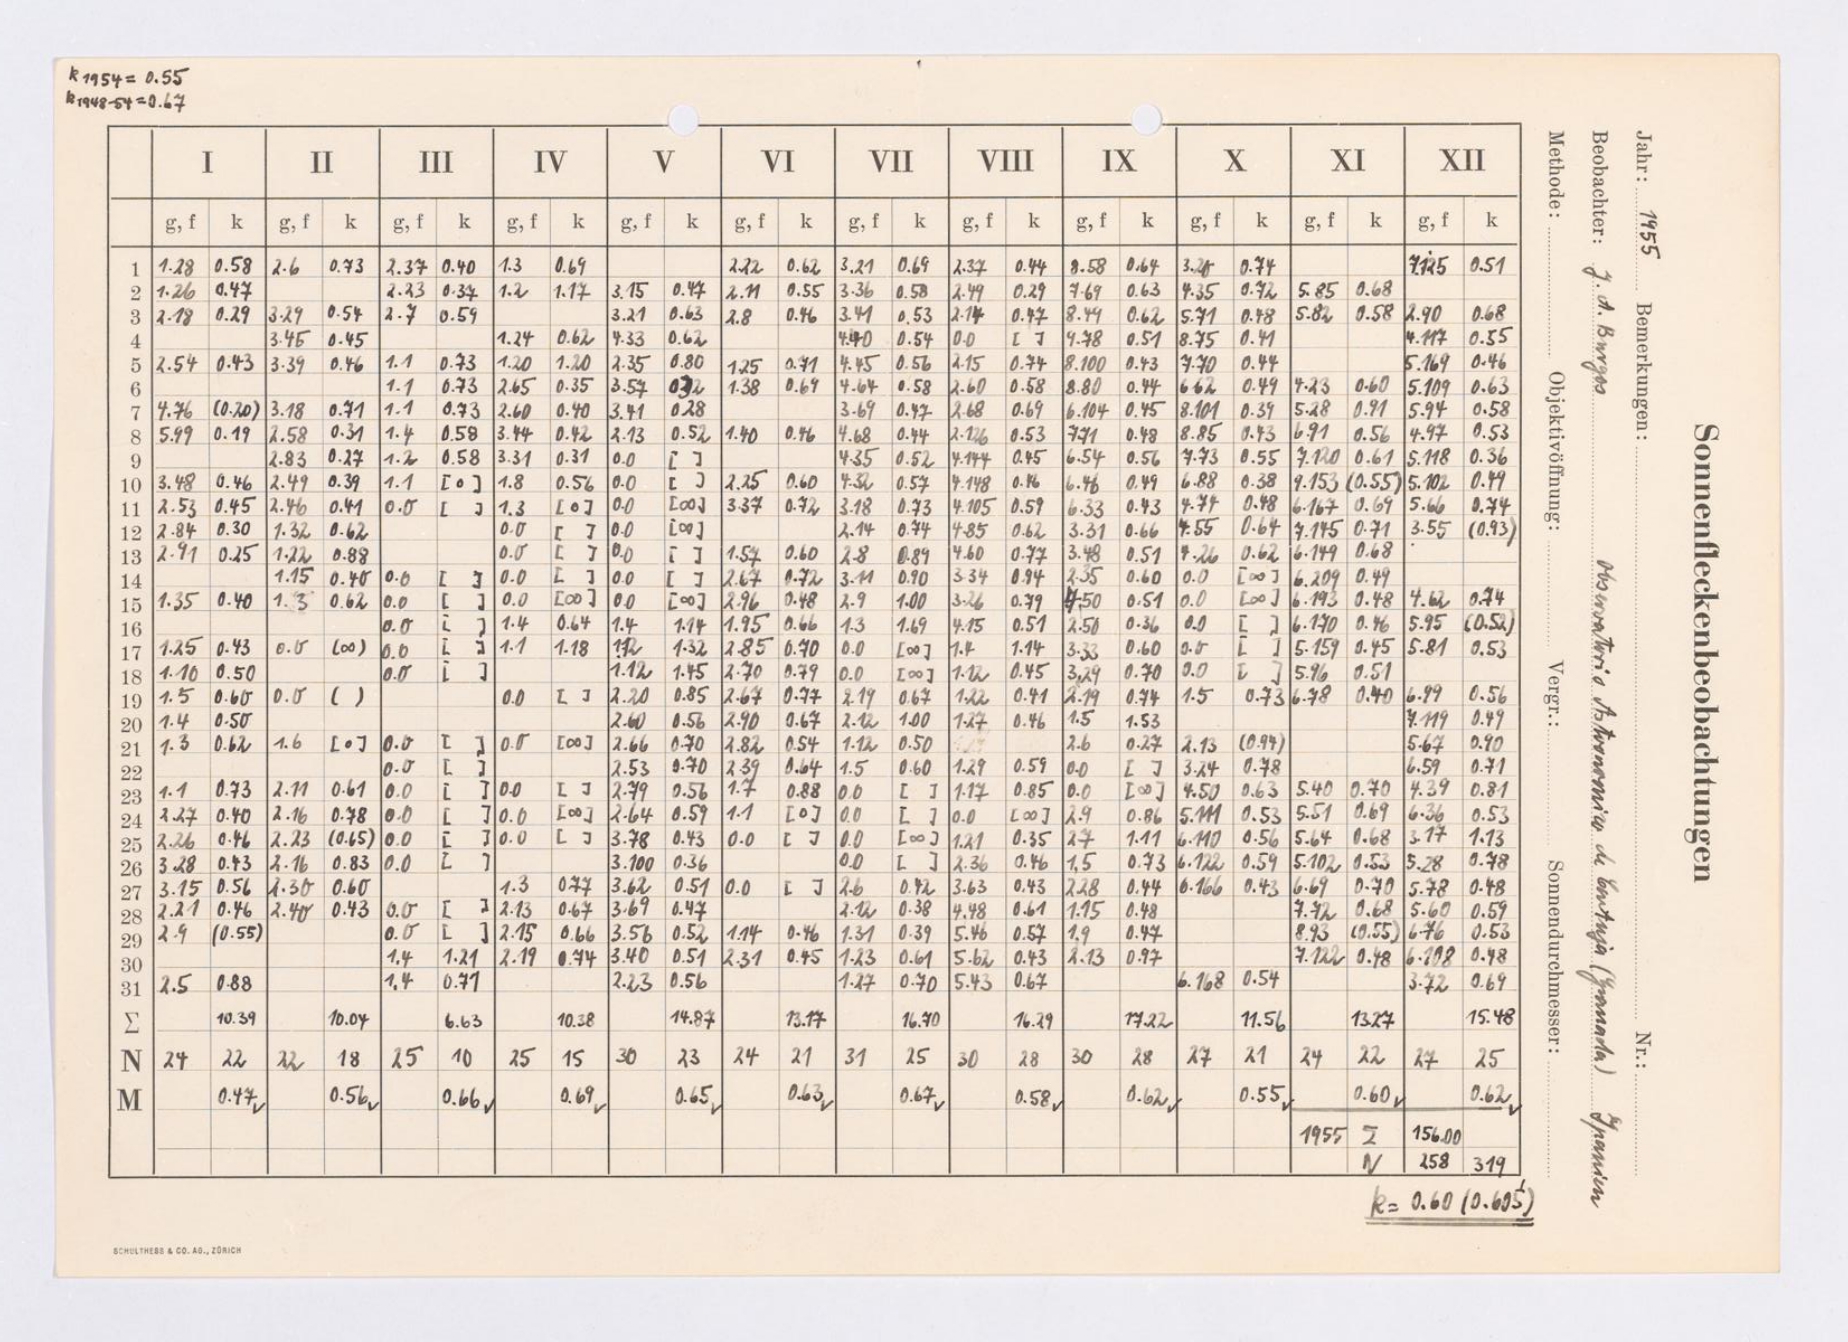 k 1954 = 0.55
k 1948-54 = 0.67
I II III IV V VI VII VIII IX X XI XII
g, f k g, f k g, f k g, f k g, f k g, f k g, f k g, f k g, f k g, f k g, f k g, f k
1 1.28 0.58 2.6 0.73 2.37 0.40 1.3 0.69 2.22 0.62 3.21 0.69 2.37 0.44 8.58 0.64 0.74 7.125 0.51
2 1.26 0.47 2.23 0.37 1.2 1.17 3.15 0.47 2.11 0.55 3.36 0.58 2.49 0.29 7.69 0.63 4.35 0.72 5.85 0.68
3 2.18 0.29 3.29 0.54 2.7 0.59 3.21 0.63 2.8 0.46 3.41 0.53 2.14 0.47 8.49 0.62 5.71 0.48 5.82 0.58 2.90 0.68
4 3.45 0.45 1.24 0.62 4.33 0.62 4.40 0.54 0.0 [ ] 9.78 0.51 8.75 0.41 4.117 0.55
5 2.54 0.43 3.39 0.46 1.1 0.73 1.20 1.20 2.35 0.80 1.25 0.71 4.45 0.56 2.15 0.74 8.100 0.43 7.70 0.44 5.169 0.46
6 1.1 0.73 2.65 0.35 3.57 1.38 0.69 4.64 0.58 2.60 0.58 8.80 0.44 6.62 0.49 4.23 0.60 5.109 0.63
7 4.76 (0.20) 3.18 0.71 1.1 0.73 2.60 0.40 3.41 0.28 3.69 0.47 2.68 0.69 6.104 0.45 8.101 0.39 5.28 0.91 5.94 0.58
8 5.99 0.19 2.58 0.31 1.4 0.58 3.44 0.42 2.13 0.52 1.40 0.46 4.68 0.44 2.126 0.53 7.71 0.48 8.85 0.43 6.91 0.56 4.97 0.53
9 2.83 0.27 1.2 0.58 3.31 0.31 0.0 [ ] 4.35 0.52 4.144 0.45 6.54 0.56 7.73 0.55 7.120 0.61 5.118 0.36
10 3.48 0.46 2.49 0.39 1.1 [0] 1.8 0.56 0.0 [ ] 2.25 0.60 4.32 0.57 4.148 0.46 6.46 0.49 6.88 0.38 9.153 (0.55) 5.102 0.49
11 2.53 0.45 2.46 0.41 0.0 [ ] 1.3 [0] 0.0 [∞] 3.37 0.72 3.18 0.73 4.105 0.59 6.33 0.43 4.74 0.48 6.167 0.69 5.66 0.74
12 2.84 0.30 1.32 0.62 0.0 [ ] 0.0 [∞] 2.14 0.74 4.85 0.62 3.31 0.66 4.55 0.64 7.145 0.71 3.55 (0.93)
13 2.91 0.25 1.22 0.88 0.0 [ ] 0.0 [ ] 1.57 0.60 2.8 0.89 4.60 0.77 3.48 0.51 4.26 0.62 6.149 0.68
14 1.15 0.40 0.0 [ ] 0.0 [ ] 0.0 [ ] 2.67 0.72 3.11 0.90 3.34 0.94 2.35 0.60 0.0 [∞] 6.209 0.49
15 1.35 0.40 1.3 0.62 0.0 [ ] 0.0 [∞] 0.0 [∞] 2.96 0.48 2.9 1.00 3.26 0.79 0.51 0.0 [∞] 6.193 0.48 4.62 0.74
16 0.0 [ ] 1.4 0.64 1.4 1.14 1.95 0.66 1.3 1.69 4.15 0.51 2.50 0.36 0.0 [ ] 6.170 0.46 5.95 (0.52)
17 1.25 0.43 0.0 (∞) 0.0 [ ] 1.1 1.18 1.12 1.32 2.85 0.70 0.0 [∞] 1.4 1.14 3.33 0.60 0.0 [ ] 5.159 0.45 5.81 0.53
18 1.10 0.50 0.0 [ ] 1.12 1.45 2.70 0.79 0.0 [∞] 1.12 0.45 3.29 0.70 0.0 [ ] 5.96 0.51
19 1.5 0.60 0.0 ( ) 0.0 [ ] 2.20 0.85 2.67 0.77 2.19 0.67 1.22 0.41 2.19 0.74 1.5 0.73 6.78 0.40 6.99 0.56
20 1.4 0.50 2.60 0.56 2.90 0.67 2.12 1.00 1.27 0.46 1.5 1.53 7.119 0.49
21 1.3 0.62 1.6 [0] 0.0 [ ] 0.0 [∞] 2.66 0.70 2.82 0.54 1.12 0.50 2.6 0.27 2.13 (0.94) 5.67 0.90
22 0.0 [ ] 2.53 0.70 2.39 0.64 1.5 0.60 1.29 0.59 0.0 [ ] 3.24 0.78 6.59 0.71
23 1.1 0.73 2.11 0.61 0.0 [ ] 0.0 [ ] 2.79 0.56 1.7 0.88 0.0 [ ] 1.17 0.85 0.0 [∞] 4.50 0.63 5.40 0.70 4.39 0.81
24 2.27 0.40 2.16 0.78 0.0 [ ] 0.0 [∞] 2.64 0.59 1.1 [0] 0.0 [ ] 0.0 [∞] 2.9 0.86 5.111 0.53 5.51 0.69 6.36 0.53
25 2.26 0.46 2.23 (0.65) 0.0 [ ] 0.0 [ ] 3.78 0.43 0.0 [ ] 0.0 [∞] 1.21 0.35 2.7 1.11 6.110 0.56 5.64 0.68 3.17 1.13
26 3.28 0.43 2.16 0.83 0.0 [ ] 3.100 0.36 0.0 [ ] 2.36 0.46 1.5 0.73 6.122 0.59 5.102 0.53 5.28 0.78
27 3.15 0.56 2.30 0.60 1.3 0.77 3.62 0.51 0.0 [ ] 2.6 0.42 3.63 0.43 2.28 0.44 6.166 0.43 6.69 0.70 5.78 0.48
28 2.21 0.46 2.40 0.43 0.0 [ ] 2.13 0.67 3.69 0.47 2.12 0.38 4.48 0.61 1.15 0.48 7.72 0.68 5.60 0.59
29 2.9 (0.55) 0.0 [ ] 2.15 0.66 3.56 0.52 1.14 0.46 1.31 0.39 5.46 0.57 1.9 0.47 8.93 (0.55) 6.76 0.53
30 1.4 1.21 2.19 0.74 3.40 0.51 2.31 0.45 1.23 0.61 5.62 0.43 2.13 0.97 7.122 0.48 0.48
31 2.5 0.88 1.4 0.71 2.23 0.56 1.27 0.70 5.43 0.67 6.168 0.54 3.72 0.69
Σ 10.39 10.04 6.63 10.38 14.87 13.17 16.70 16.29 17.22 11.56 13.27 15.48
N 24 22 22 18 25 10 25 15 30 23 24 21 31 25 30 28 30 28 27 21 24 22 27 25
M 0.47 0.56 0.66 0.69 0.65 0.63 0.67 0.58 0.62 0.55 0.60 0.62
1955 Σ 156.00
N 258 319
k = 0.60 (0.605)
SCHULTHESS & CO. AG., ZÜRICH
Sonnenfleckenbeobachtungen
Jahr: 1955 Bemerkungen: Nr.:
Beobachter: J. A. Burgos Observatorio Astronomico de Cartuja (Granada) Spanien
Methode: Objektivöffnung: Vergr.: Sonnendurchmesser: